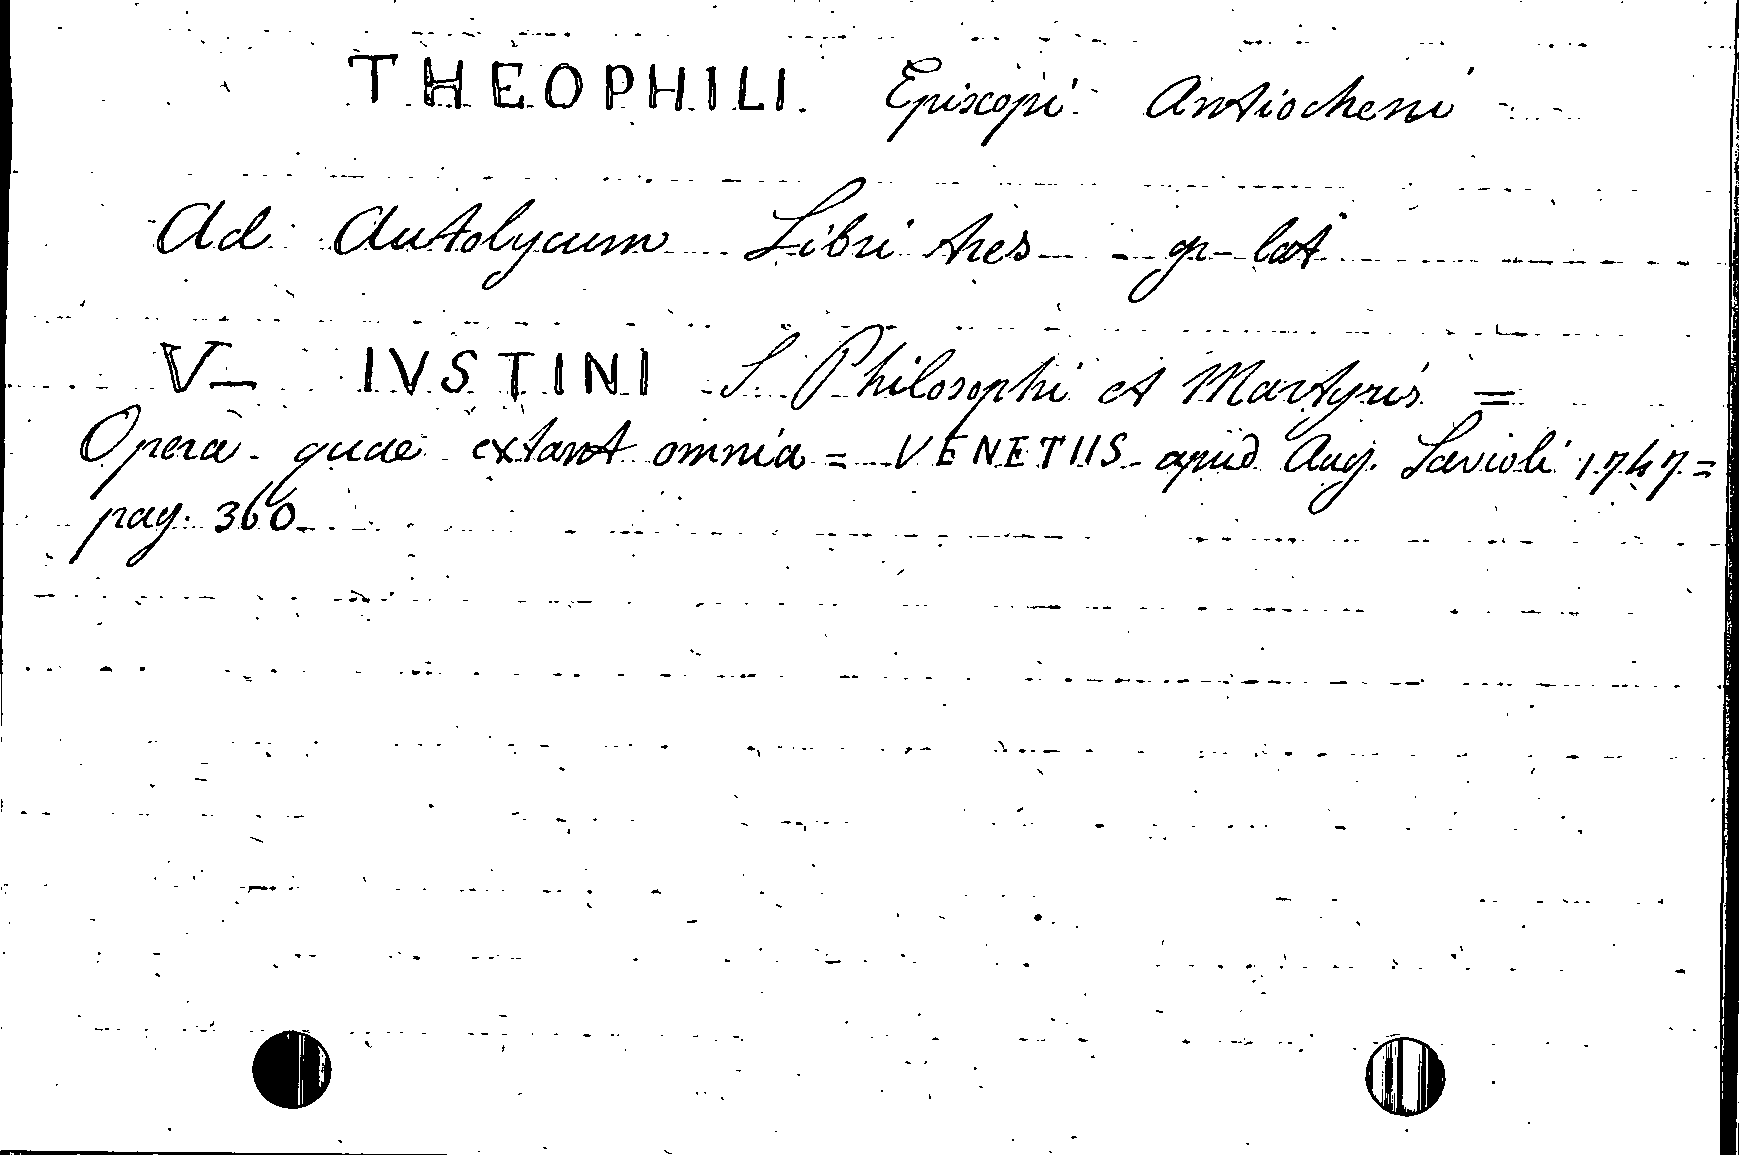 THEOPHILI. Episcopi Antiocheni
Ad Autolycum Libri tres - gr-lat
V- IVSTINI S. Philosophi et Martyris =
Opera quae extant omnia = VENETIIS apud Aug. Savioli 1747=
pag. 360